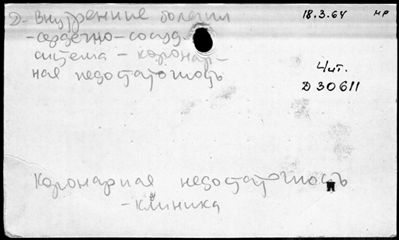 Д- Внутренние болезни
18.3.64
МР
-сердечно-сосуд-
система - коронар-
ная недостаточность
Чит.
D 30611
Коронарная недостаточность
-клиника